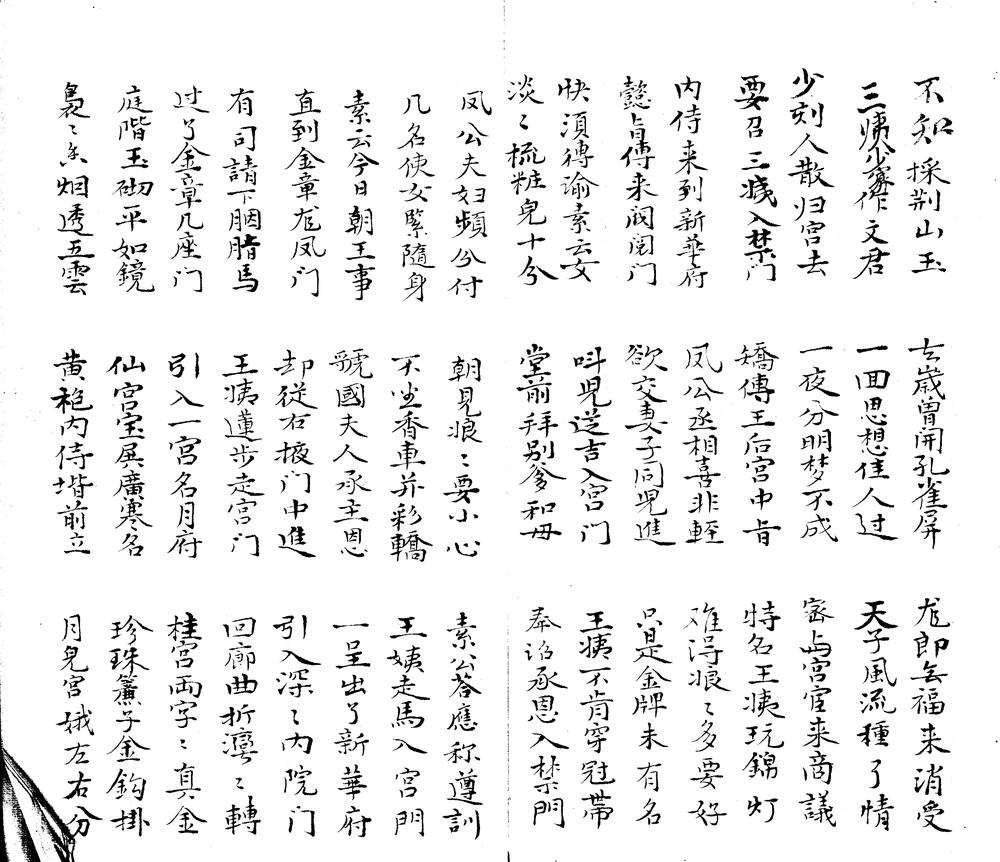 不知採荆山玉　去歲曾開孔雀屏　龙郎无福来消受
三姨作文君　一回思想佳人过　天子風流種了情
少刻人散归宫去　一夜分明梦不成　密与宫官来商議
要召三姨入禁门　矯傳王后宫中旨　特名王姨玩錦灯
内侍来到新華府　凤公丞相喜非輕　难得娘々多要好
懿旨傳来阀阅门　欲交妻子同児進　只是金牌未有名
快須傳谕素云女　呌児送吉入宫门　王姨不肯穿冠帶
淡々梳粧皃十分　堂前拜别爹和毋　奉诏承恩入禁門
凤公夫妇頻分付　朝見娘々要小心　素公荅應称遵訓
几名使女緊隨身　不坐香車并彩轎　王姨走馬入宫門
素云今日朝王事　虢國夫人承主恩　一呈出了新華府
直到金章龙凤门　却從右掖门中進　引入深々内院门
有司請下胭脂馬　王姨蓮步走宫门　回廊曲折彎々轉
过了金章几座门　引入一宫名月府　桂宫両字々真金
庭階玉砌平如鏡　仙宫宝扆廣寒名　珍珠簾子金鈎掛
裊々香烟透五雲　黄袍内侍堦前立　月皃宫娥左右分